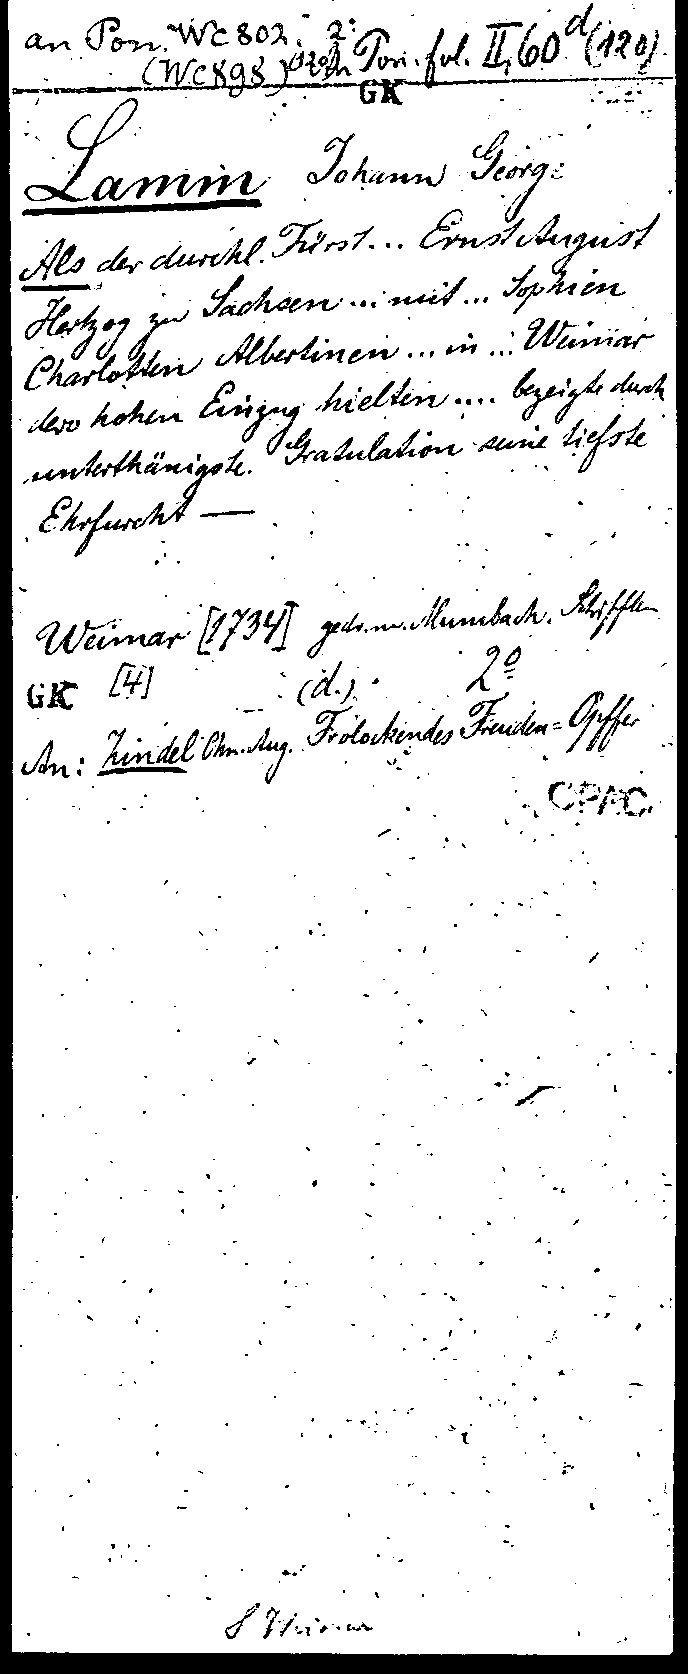 an Pon. WC 802. 2º
(WC 898) an Pon. fol. II, 60 d (120)
GK
Lamm Johann Georg:
Als der durchl. Fürst... Ernst August
Hertzog zu Sachsen ... mit ... Sophien
Charlotten Albertinen ... in ... Weimar
dero hohen Einzug hielten .... bezeigte durch
unterthänigste. Gratulation seine tiefste
Ehrfurcht —
Weimar [1734] gedr. m. Mumbach. Schrifften
GK [4] (d.) 2º
An: Zindel Chr. Aug. Frolockendes Freuden=Opffer
CPAC.